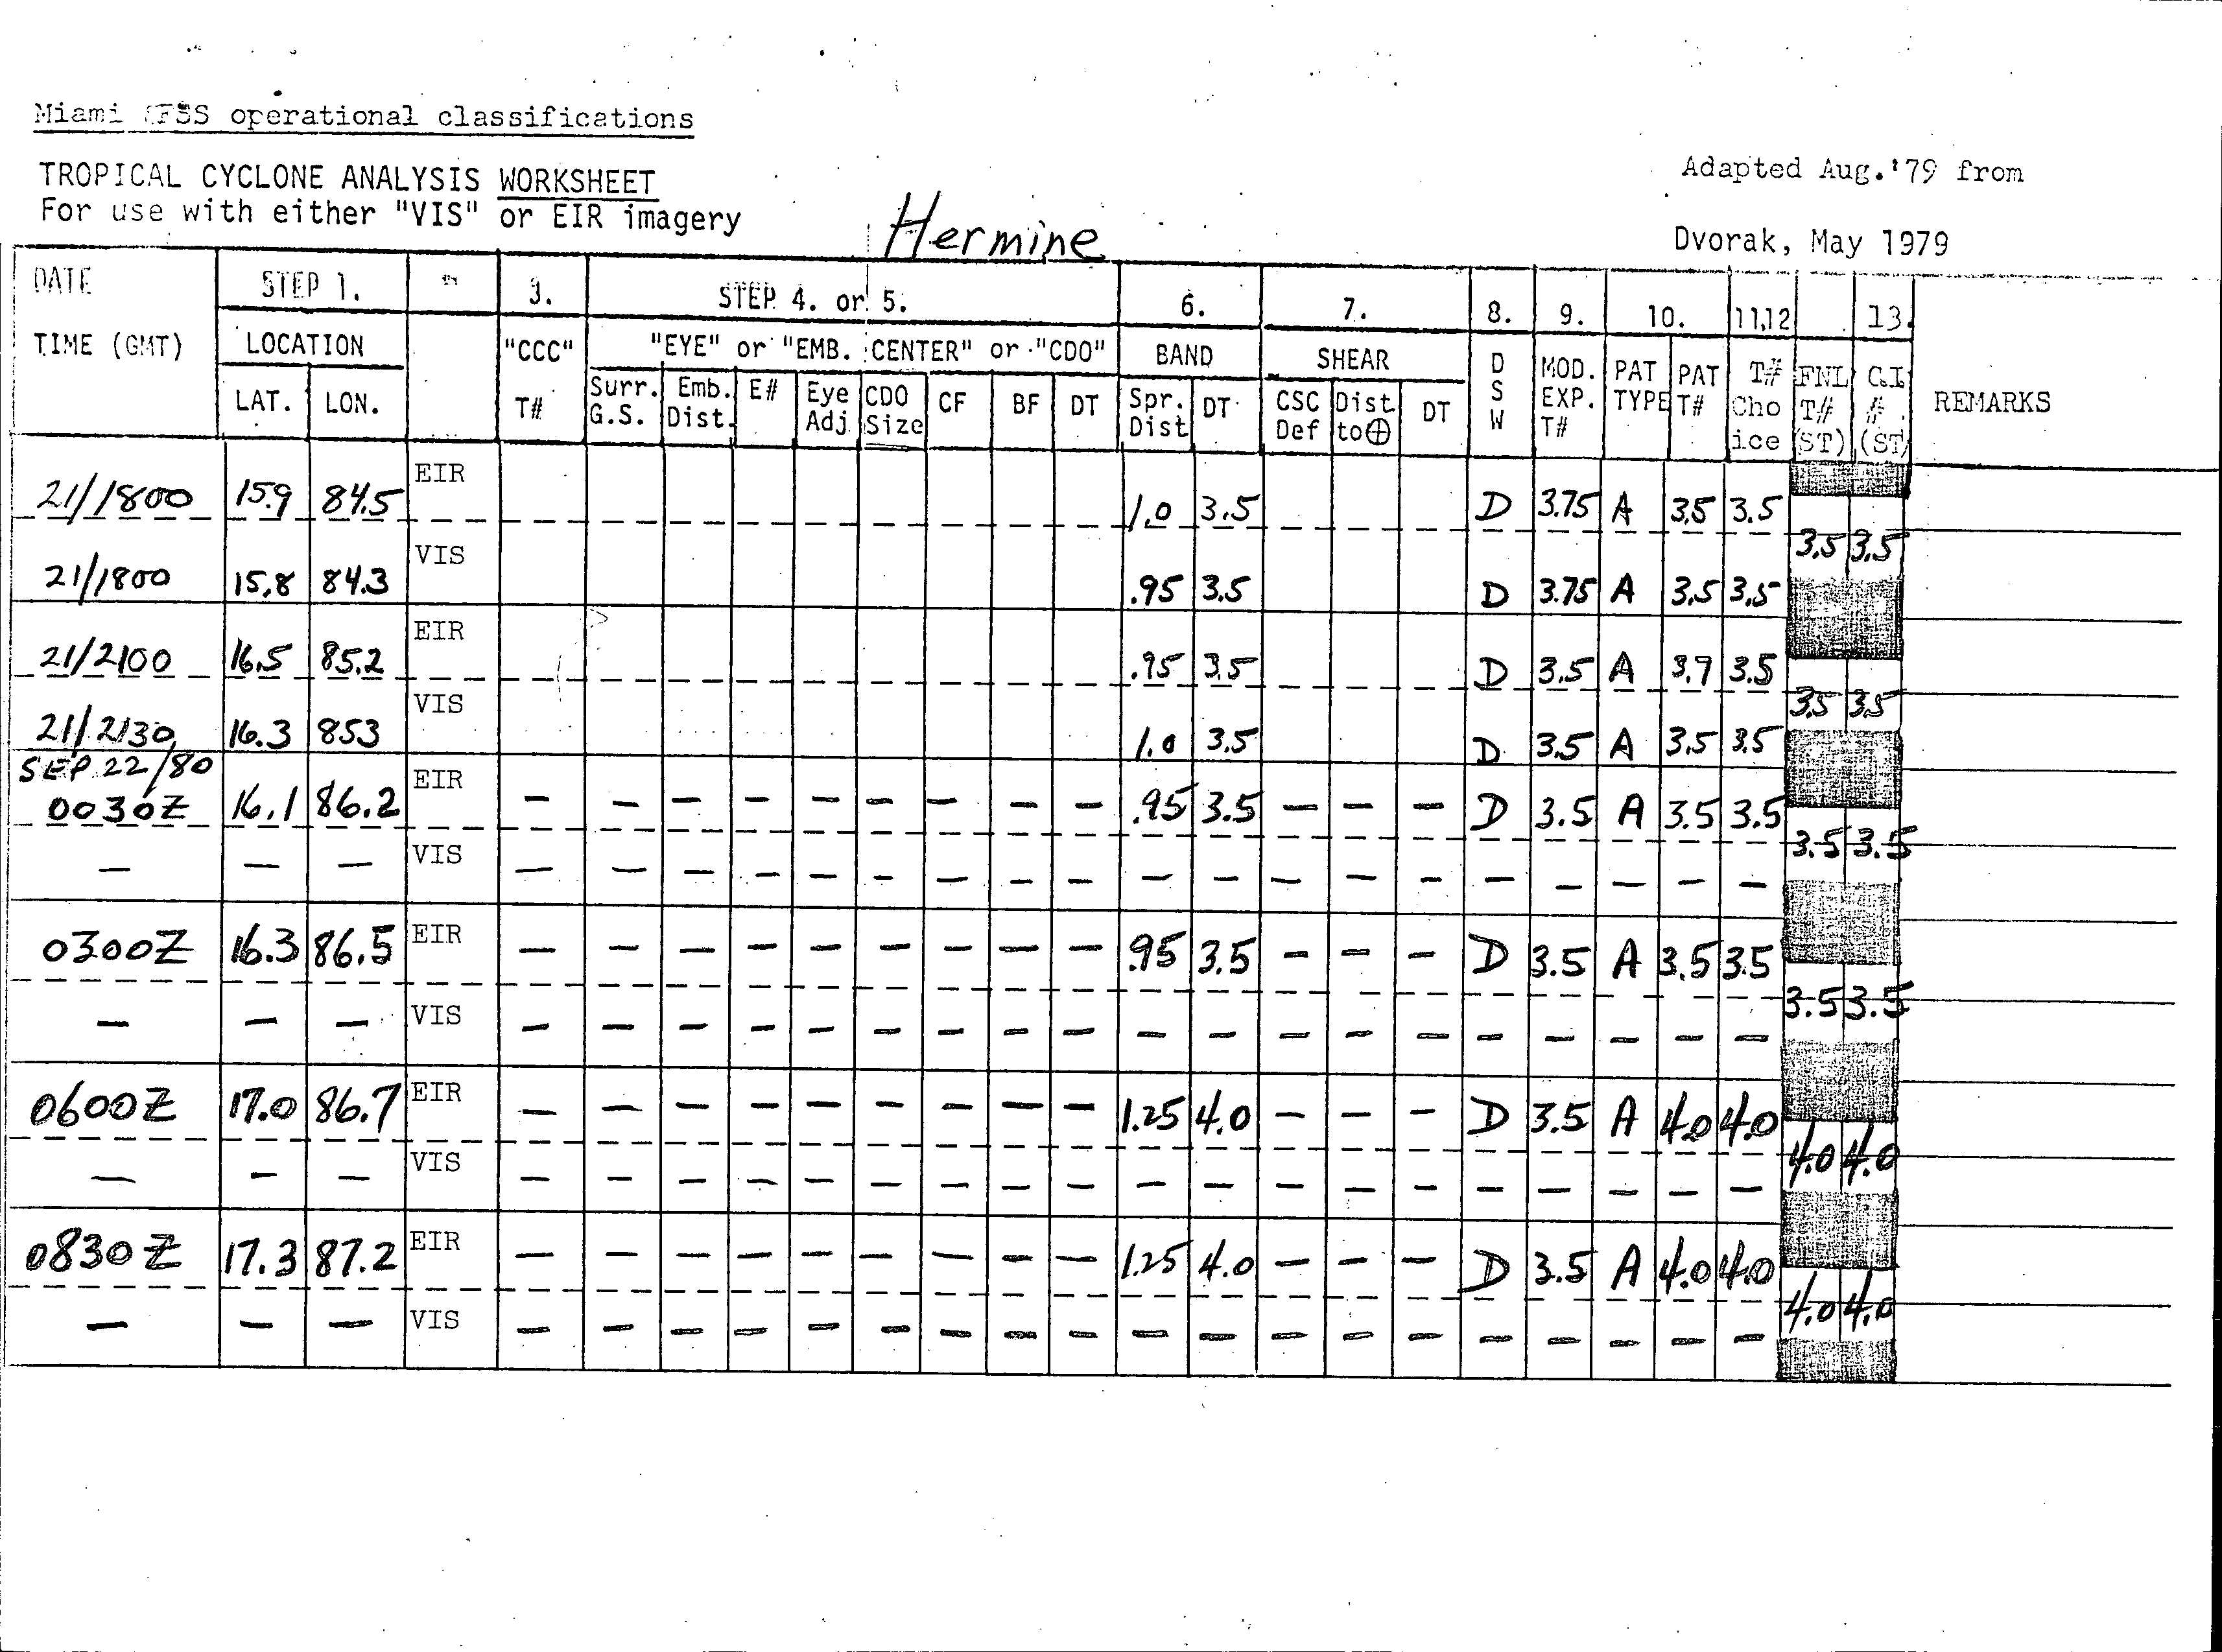 Miami SFSS operational classifications
TROPICAL CYCLONE ANALYSIS WORKSHEET
For use with either "VIS" or EIR imagery
Hermine
Adapted Aug.'79 from
Dvorak, May 1979
DATE STEP 1. 3. STEP 4. or 5. 6. 7. 8. 9. 10. 11,12 13.
TIME (GMT) LOCATION "CCC" "EYE" or "EMB. CENTER" or "CDO" BAND SHEAR D S W MOD. EXP. T# PAT TYPE PAT T# T# Cho ice FNL T# (ST) C.I # (ST) REMARKS
LAT. LON. T# Surr. G.S. Emb. Dist. E# Eye Adj CDO Size CF BF DT Spr. Dist DT CSC Def Dist to⊕ DT
21/1800 15.9 84.5 EIR 1.0 3.5 D 3.75 A 3.5 3.5
3.5 3.5
21/1800 15.8 84.3 VIS .95 3.5 D 3.75 A 3.5 3.5
21/2100 16.5 85.2 EIR .95 3.5 D 3.5 A 3.7 3.5
3.5 3.5
21/2130 16.3 853 VIS 1.0 3.5 D 3.5 A 3.5 3.5
SEP 22/80
0030Z 16.1 86.2 EIR — — — — — — — — — .95 3.5 — — — D 3.5 A 3.5 3.5
3.5 3.5
— — — VIS — — — — — — — — — — — — — — — — — — — —
0300Z 16.3 86.5 EIR — — — — — — — — — .95 3.5 — — — D 3.5 A 3.5 3.5
3.5 3.5
— — — VIS — — — — — — — — — — — — — — — — — — — —
0600Z 17.0 86.7 EIR — — — — — — — — — 1.25 4.0 — — — D 3.5 A 4.0 4.0
4.0 4.0
— — — VIS — — — — — — — — — — — — — — — — — — — —
0830Z 17.3 87.2 EIR — — — — — — — — — 1.25 4.0 — — — D 3.5 A 4.0 4.0
4.0 4.0
— — — VIS — — — — — — — — — — — — — — — — — — — —